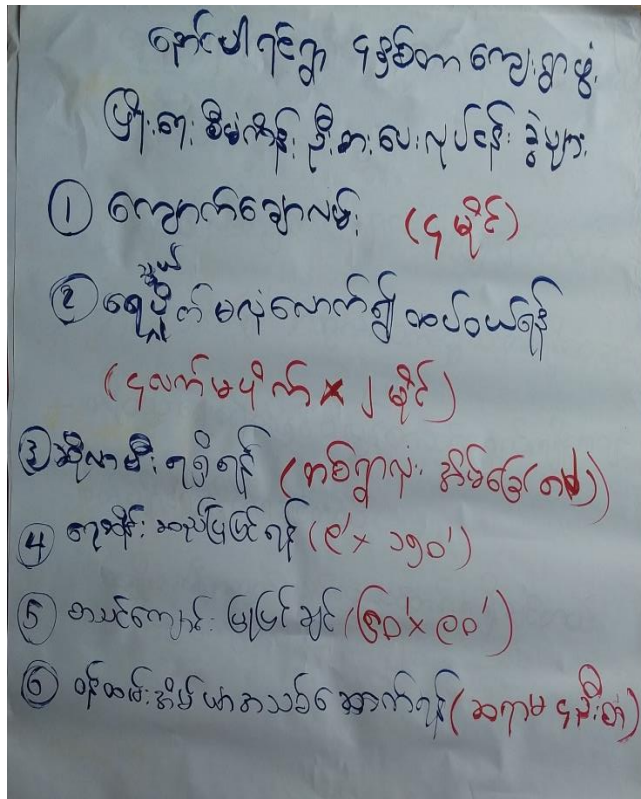 နောင်ပါရင်ရွာ ၄နှစ်တာ ကျေးရွာဖွံ့
ဖြိုးရေး စီမံကိန်း ဦးစားပေးလုပ်ငန်း ခွဲများ
① ကျောက်ချောလမ်း (၄ မိုင်)
② ရေပိုက် မလုံလောက်၍ ထပ်ဝယ်ရန်
(၄လက်မပိုက် x ၂ မိုင်)
③ ဆိုလာမီး ရရှိရန် (တစ်ရွာလုံး အိမ်ခြေ
④ ရေအိုင်း အသည်ပြုပြင်ရန် (၉' x ၁၅၀')
⑤ စာသင်ကျောင်း ပြုပြင်ချင် (၆၀' x ၉၀')
⑥ ဝန်ထမ်းအိမ်ယာအသစ်ဆောက်ရန် (ဆရာမ ၄ဦးစာ)